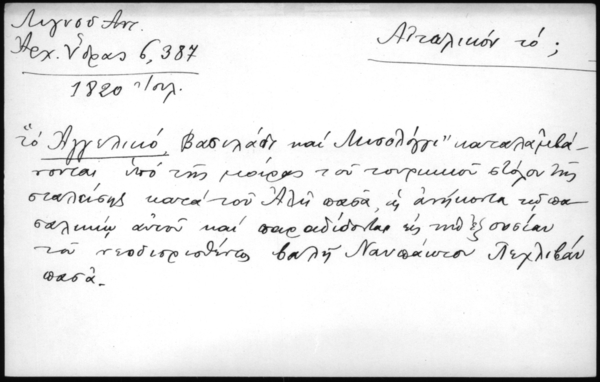 Λιγνοῦ Ἀντ.
Ἀρχ. Ὕδρας 6, 387
1820 Ἰουλ.
Αἰταλικόν τό;
"τό Ἀγγελικό, Βασιλάδι καί Μισολόγγι" καταλαμβά-
νονται ὑπό τῆς μοίρας τοῦ τουρκικοῦ στόλου τῆς
σταλείσης κατά τοῦ Ἀλῆ πασᾶ, ὡς ἀνήκοντα τῷ πα-
σαλικίῳ αὐτοῦ καί παραδίδονται εἰς τήν ἐξουσίαν
τοῦ νεοδιορισθέντος βαλῆ Ναυπάκτου Πεχλιβάν
πασᾶ.